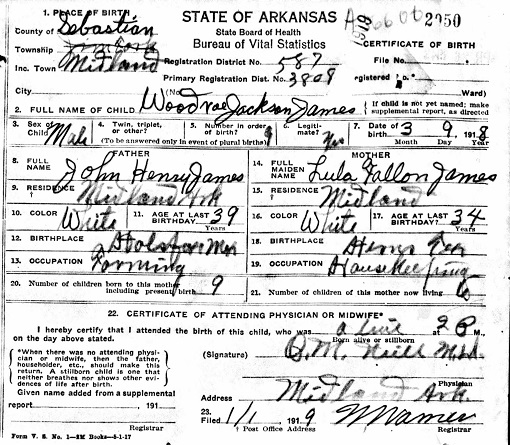 1. PLACE OF BIRTH
STATE OF ARKANSAS
State Board of Health
Bureau of Vital Statistics
1919
2950
County of Sebastian
CERTIFICATE OF BIRTH
Township
Registration District No. 587
File No.
Inc. Town Midland
Primary Registration Dist. No. 3808
Registered
City (No. Ward)
2. FULL NAME OF CHILD Woodrae Jackson James
If child is not yet named; make supplemental report, as directed
3. Sex of Child Male
4. Twin, triplet, or other?
5. Number in order of birth 9
(To be answered only in event of plural births)
6. Legitimate? Yes
7. Date of birth 3 9 1918
Month Day Year
FATHER
MOTHER
8. FULL NAME John Henry James
14. FULL MAIDEN NAME Lula Fallon James
9. RESIDENCE Midland Ark
15. RESIDENCE Midland
10. COLOR White
11. AGE AT LAST BIRTHDAY? 39 Years
16. COLOR White
17. AGE AT LAST BIRTHDAY? 34 Years
12. BIRTHPLACE
18. BIRTHPLACE
13. OCCUPATION Farming
19. OCCUPATION Housekeeping
20. Number of children born to this mother including present birth 9
21. Number of children of this mother now living 6
22. CERTIFICATE OF ATTENDING PHYSICIAN OR MIDWIFE*
I hereby certify that I attended the birth of this child, who was alive at 2 P M.,
on the day above stated.
Born alive or stillborn
*When there was no attending physician or midwife, then the father, householder, etc., should make this return. A stillborn child is one that neither breathes nor shows other evidences of life after birth.
(Signature)
Physician
Given name added from a supplemental
Address Midland Ark
report 191
23. 1/1 1919
Registrar
Post Office Address
Registrar
Form V. S. No. 1—2M Books—5-1-17